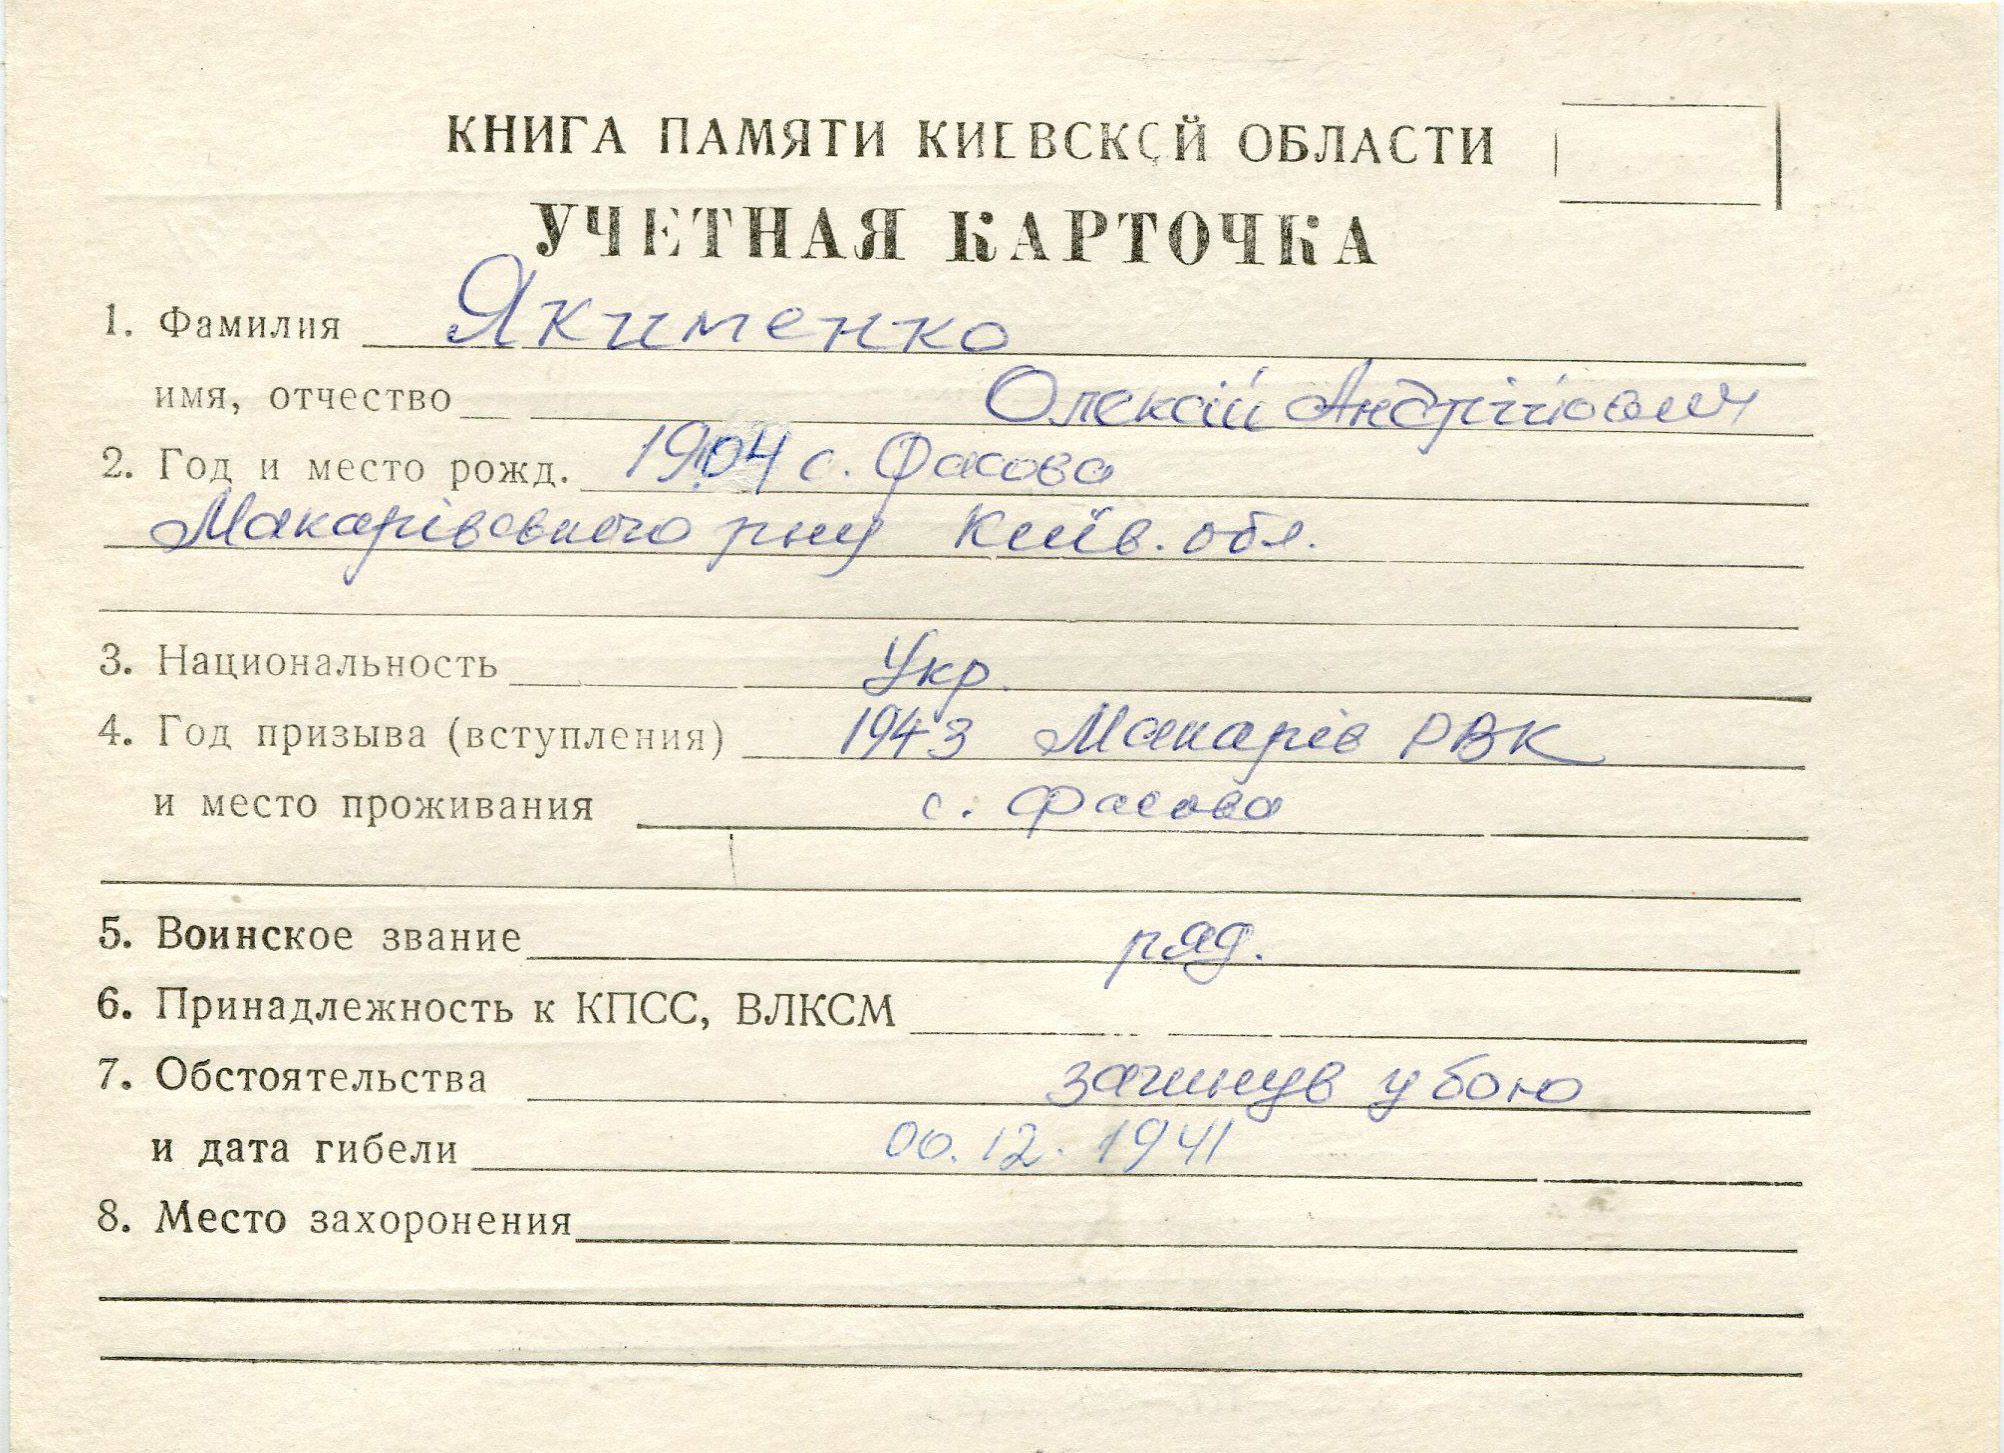 КНИГА ПАМЯТИ КИЕВСКОЙ ОБЛАСТИ
УЧЕТНАЯ КАРТОЧКА
1. Фамилия Якименко
имя, отчество Олексій Андрійович
2. Год и место рожд. 1904 с. Фасова
Макарівського рну Київ. обл.
3. Национальность Укр.
4. Год призыва (вступления) 1943 Макарів РВК
и место проживания с. Фасова
5. Воинское звание ряд.
6. Принадлежность к КПСС, ВЛКСМ
7. Обстоятельства загинув у бою
и дата гибели 00.12.1941
8. Место захоронения